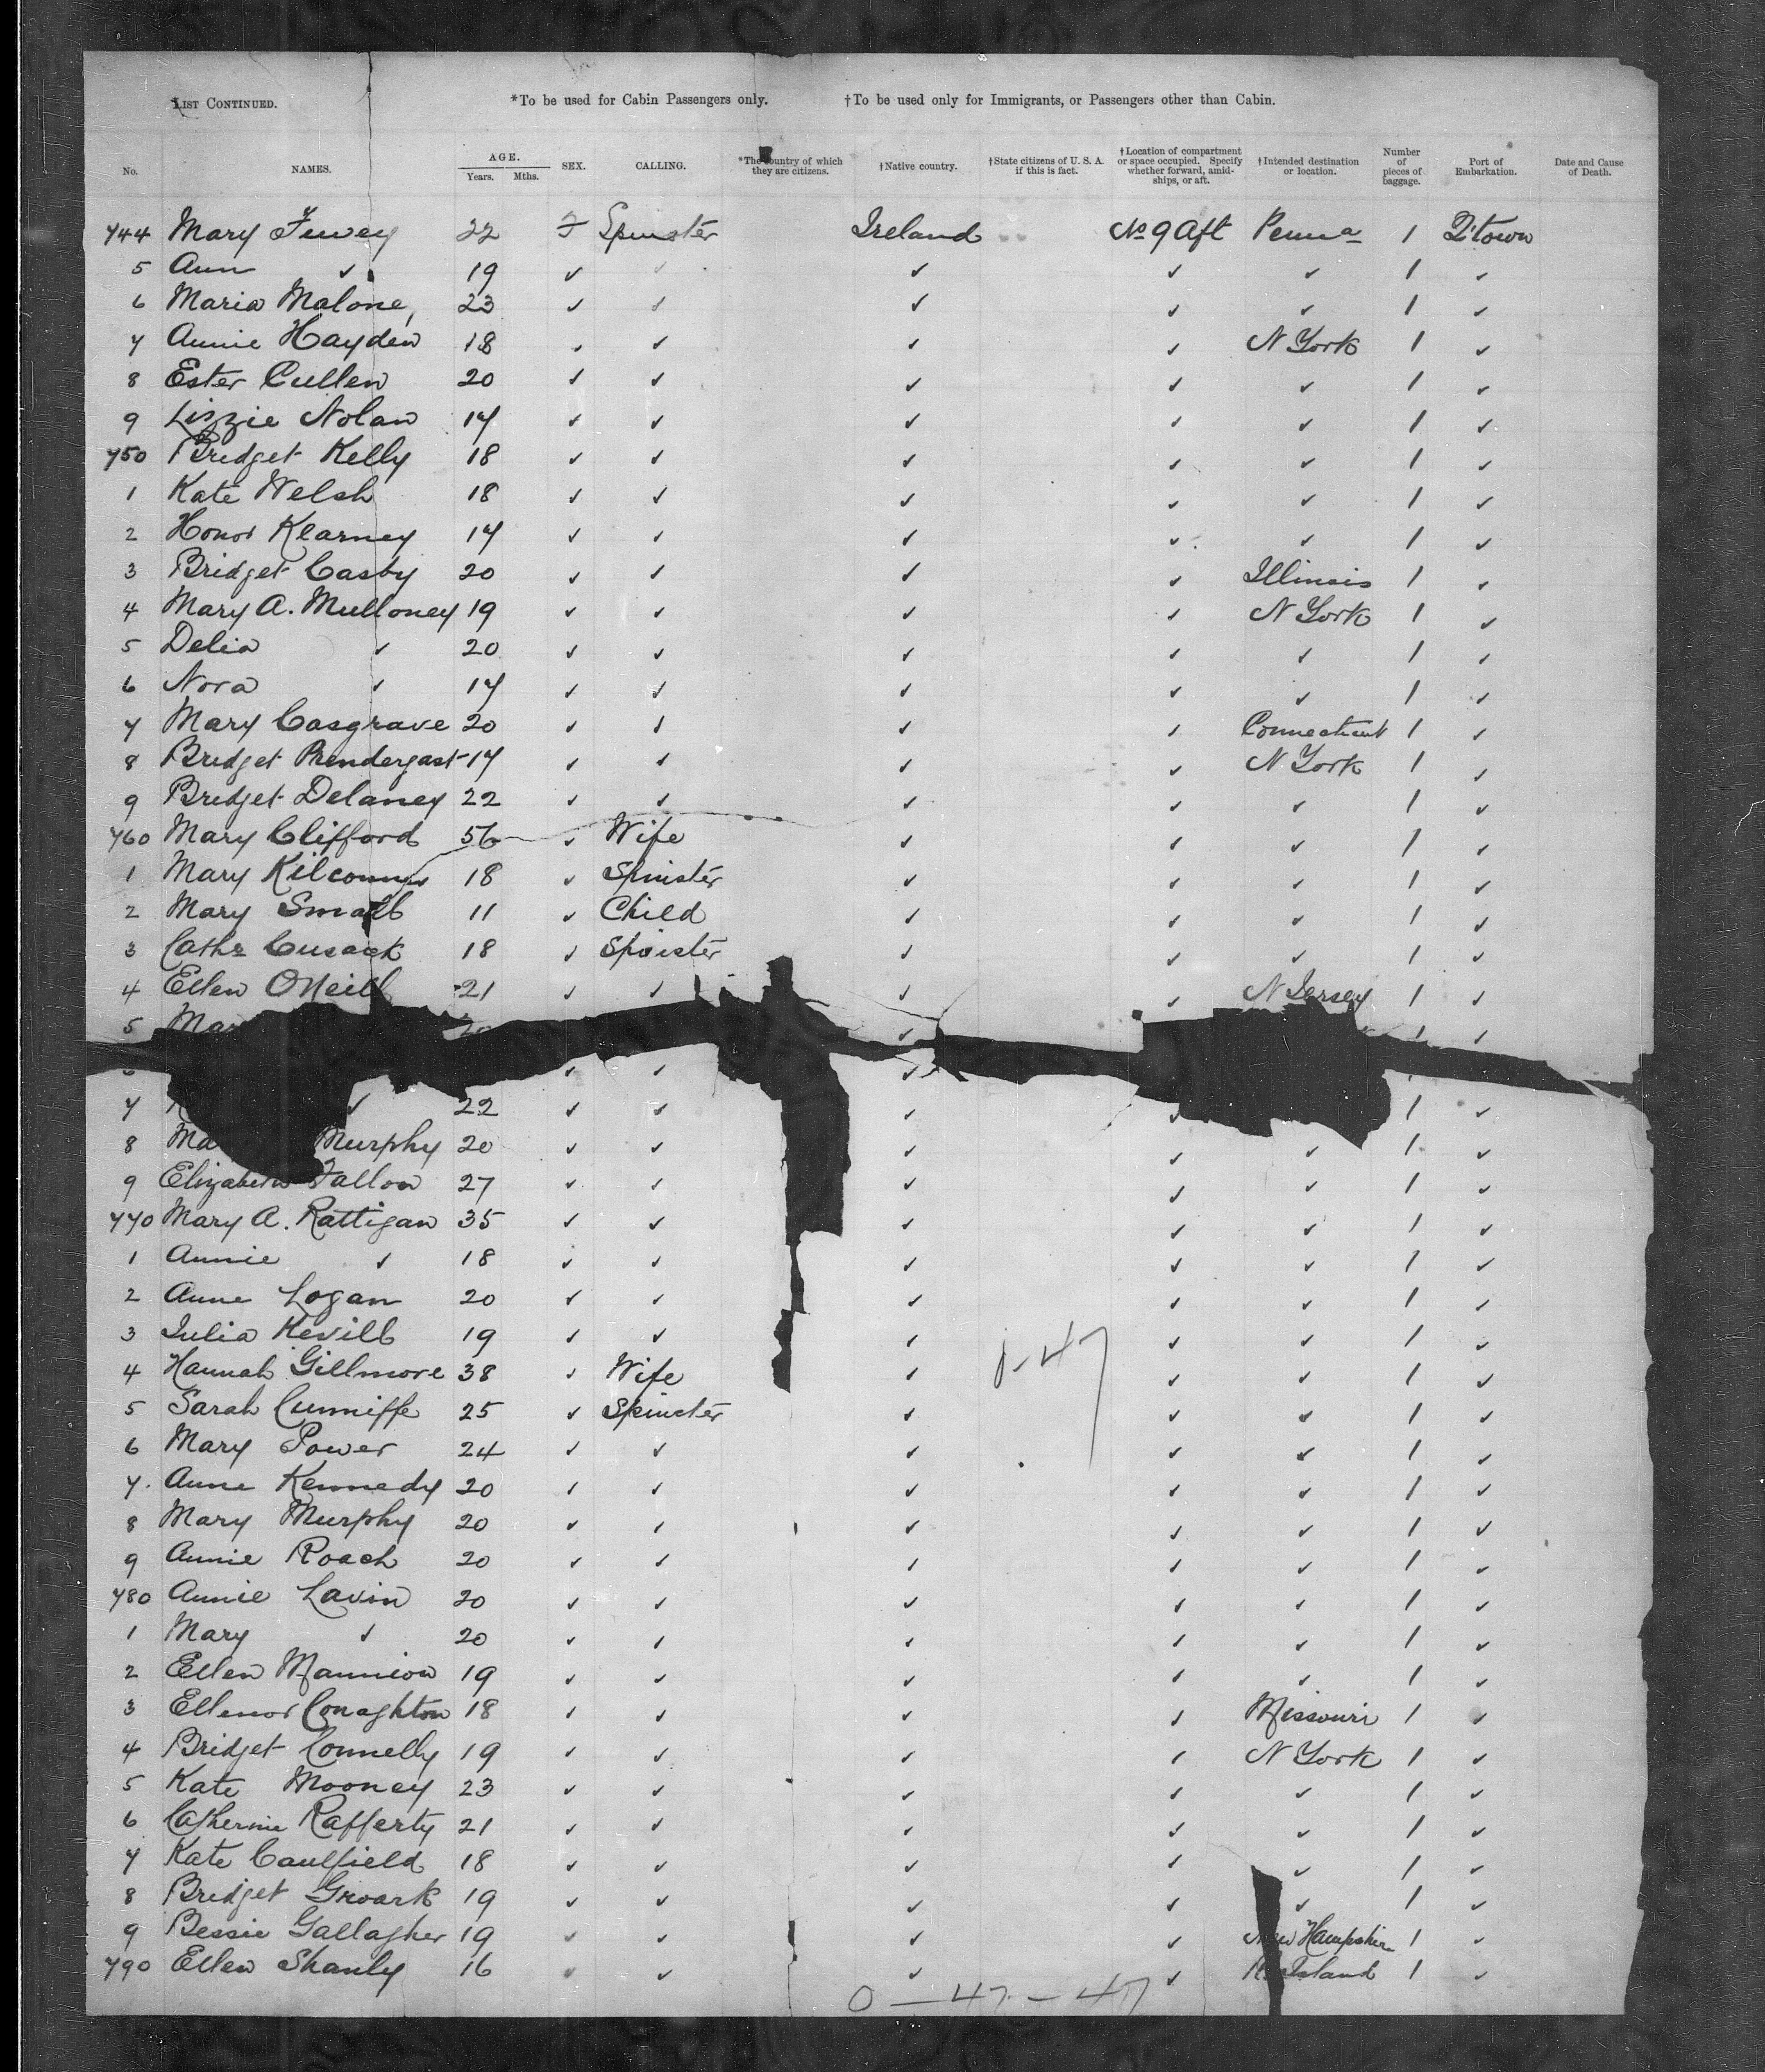 LIST CONTINUED. *To be used for Cabin Passengers only. †To be used only for Immigrants, or Passengers other than Cabin.
No. NAMES. AGE. Years. Mths. SEX. CALLING. *The country of which they are citizens. †Native country. †State citizens of U. S. A. if this is fact. †Location of compartment or space occupied. Specify whether forward, amidships, or aft. †Intended destination or location. Number of pieces of baggage. Port of Embarkation. Date and Cause of Death.
744 Mary 22 F Spinster Ireland No 9 Aft Penna 1 Q'town
5 Ann ✓ 19 ✓ ✓ ✓ ✓ ✓ 1 ✓
6 Maria Malone, 23 ✓ ✓ ✓ ✓ ✓ 1 ✓
7 Annie Hayden 18 ✓ ✓ ✓ ✓ N York 1 ✓
8 Ester Cullen 20 ✓ ✓ ✓ ✓ ✓ 1 ✓
9 Lizzie Nolan 17 ✓ ✓ ✓ ✓ ✓ 1 ✓
750 Bridget Kelly 18 ✓ ✓ ✓ ✓ ✓ 1 ✓
1 Kate Welsh 18 ✓ ✓ ✓ ✓ ✓ 1 ✓
2 Honor Klarney 17 ✓ ✓ ✓ ✓ ✓ 1 ✓
3 Bridget Casby 20 ✓ ✓ ✓ ✓ Illinois 1 ✓
4 Mary A. Mulloney 19 ✓ ✓ ✓ ✓ N York 1 ✓
5 Delia ✓ 20 ✓ ✓ ✓ ✓ ✓ 1 ✓
6 Nora ✓ 17 ✓ ✓ ✓ ✓ ✓ 1 ✓
7 Mary Cosgrave 20 ✓ ✓ ✓ ✓ Connecticut 1 ✓
8 Bridget Prendergast 17 ✓ ✓ ✓ ✓ N York 1 ✓
9 Bridget Delaney 22 ✓ ✓ ✓ ✓ ✓ 1 ✓
760 Mary Clifford 56 ✓ Wife ✓ ✓ ✓ 1 ✓
1 Mary 18 ✓ Spinster ✓ ✓ ✓ 1 ✓
2 Mary Small 11 ✓ Child ✓ ✓ ✓ 1 ✓
3 Cathe Cusack 18 ✓ Spinster ✓ ✓ ✓ 1 ✓
4 Ellen ONeill 21 ✓ ✓ ✓ ✓ N Jersey 1 ✓
5 Mar ✓ 1 ✓
6 ✓ ✓ ✓
7 ✓ 22 ✓ ✓ ✓ ✓ 1 ✓
8 Ma Murphy 20 ✓ ✓ ✓ ✓ ✓ 1 ✓
9 Elizabeth Fallon 27 ✓ ✓ ✓ ✓ ✓ 1 ✓
770 Mary A. Rattigan 35 ✓ ✓ ✓ ✓ ✓ 1 ✓
1 Annie ✓ 18 ✓ ✓ ✓ ✓ ✓ 1 ✓
2 Anne Logan 20 ✓ ✓ ✓ ✓ ✓ 1 ✓
3 Julia Kevill 19 ✓ ✓ ✓ ✓ ✓ 1 ✓
4 Hannah Gillmore 38 ✓ Wife ✓ ✓ ✓ 1 ✓
5 Sarah Cunniffe 25 ✓ Spinster ✓ ✓ ✓ 1 ✓
6 Mary Power 24 ✓ ✓ ✓ ✓ ✓ 1 ✓
7. Anne Kennedy 20 ✓ ✓ ✓ ✓ ✓ 1 ✓
8 Mary Murphy 20 ✓ ✓ ✓ ✓ ✓ 1 ✓
9 Annie Roach 20 ✓ ✓ ✓ ✓ ✓ 1 ✓
780 Annie Lavin 20 ✓ ✓ ✓ ✓ ✓ 1 ✓
1 Mary ✓ 20 ✓ ✓ ✓ ✓ ✓ 1 ✓
2 Ellen Mannion 19 ✓ ✓ ✓ ✓ ✓ 1 ✓
3 Ellenor Conaghton 18 ✓ ✓ ✓ ✓ Missouri 1 ✓
4 Bridget Connelly 19 ✓ ✓ ✓ ✓ N York 1 ✓
5 Kate Mooney 23 ✓ ✓ ✓ ✓ ✓ 1 ✓
6 Catherine Rafferty 21 ✓ ✓ ✓ ✓ ✓ 1 ✓
7 Kate Caulfield 18 ✓ ✓ ✓ ✓ ✓ 1 ✓
8 Bridget Groark 19 ✓ ✓ ✓ ✓ ✓ 1 ✓
9 Bessie Gallagher 19 ✓ ✓ ✓ ✓ New Hampshire 1 ✓
790 Ellen Shanly 16 ✓ ✓ ✓ ✓ Island 1 ✓
0 — 47 — 47